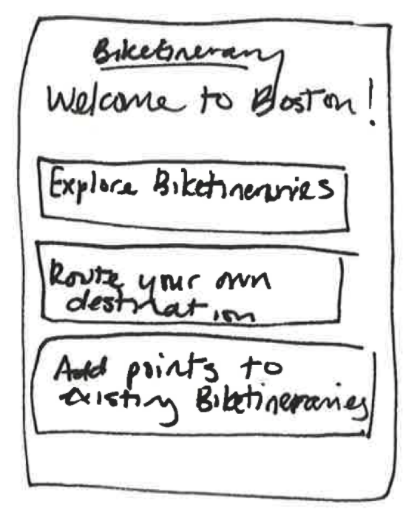 Biketinerary
Welcome to Boston!
Explore Biketineraries
Route your own
destination
Add points to
existing Biketineraries